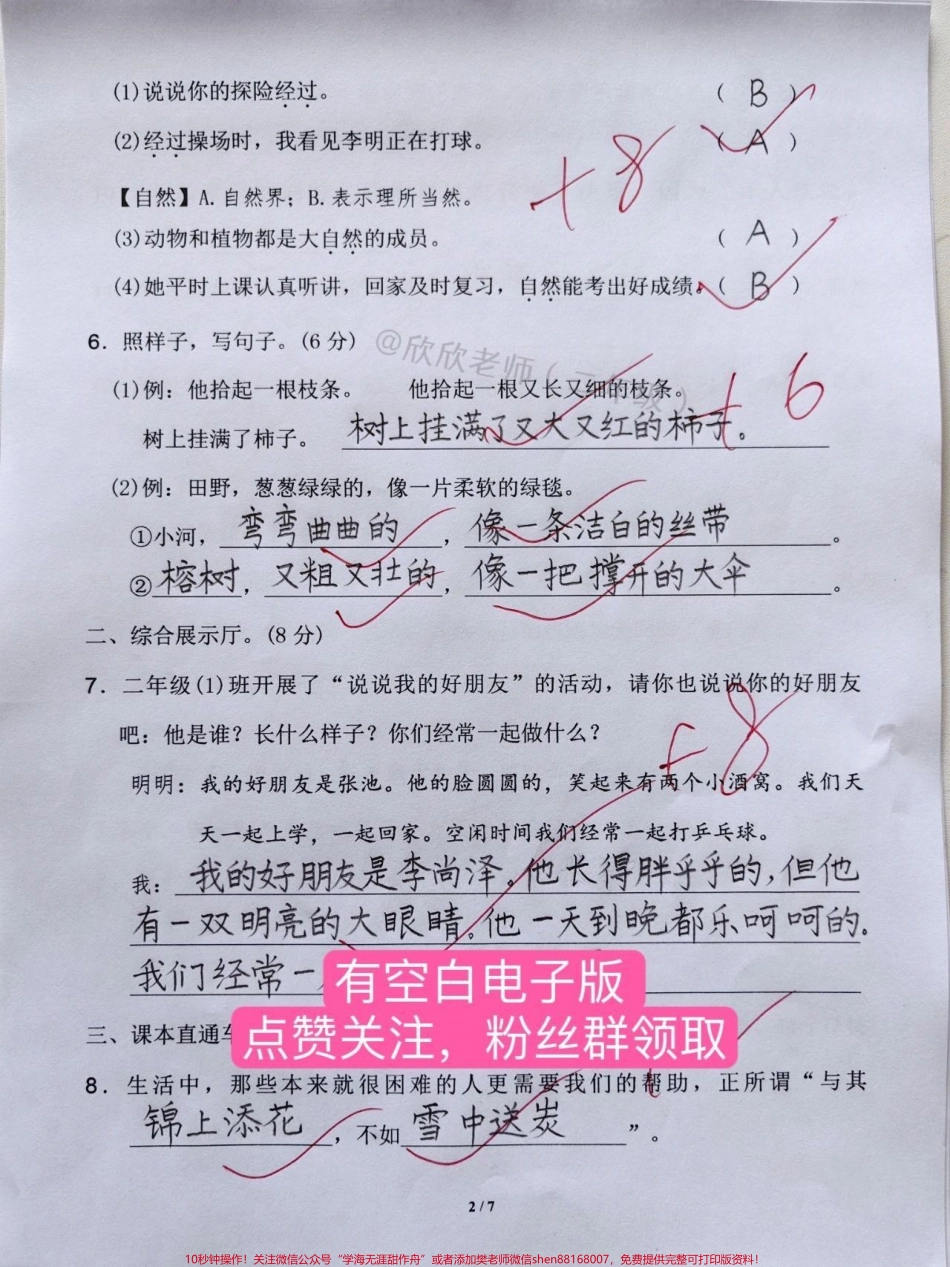 (1)说说你的探险经过。 ( B )
(2)经过操场时，我看见李明正在打球。 ( A )
+8
【自然】A.自然界；B.表示理所当然。
(3)动物和植物都是大自然的成员。 ( A )
(4)她平时上课认真听讲，回家及时复习，自然能考出好成绩。( B )
6. 照样子，写句子。(6 分)
@欣欣老师（二年级）
(1)例：他拾起一根枝条。 他拾起一根又长又细的枝条。
+6
树上挂满了柿子。 树上挂满了又大又红的柿子。
(2)例：田野，葱葱绿绿的，像一片柔软的绿毯。
①小河，弯弯曲曲的，像一条洁白的丝带。
②榕树，又粗又壮的，像一把撑开的大伞。
二、综合展示厅。(8 分)
7. 二年级(1)班开展了“说说我的好朋友”的活动，请你也说说你的好朋友
吧：他是谁？长什么样子？你们经常一起做什么？
+8
明明：我的好朋友是张池。他的脸圆圆的，笑起来有两个小酒窝。我们天
天一起上学，一起回家。空闲时间我们经常一起打乒乓球。
我：我的好朋友是李尚泽。他长得胖乎乎的,但他
有一双明亮的大眼睛。他一天到晚都乐呵呵的。
我们经常一
有空白电子版
点赞关注，粉丝群领取
三、课本直通
8. 生活中，那些本来就很困难的人更需要我们的帮助，正所谓“与其
锦上添花，不如雪中送炭”。
2 / 7
10秒钟操作！关注微信公众号“学海无涯甜作舟”或者添加樊老师微信shen88168007，免费提供完整可打印版资料！